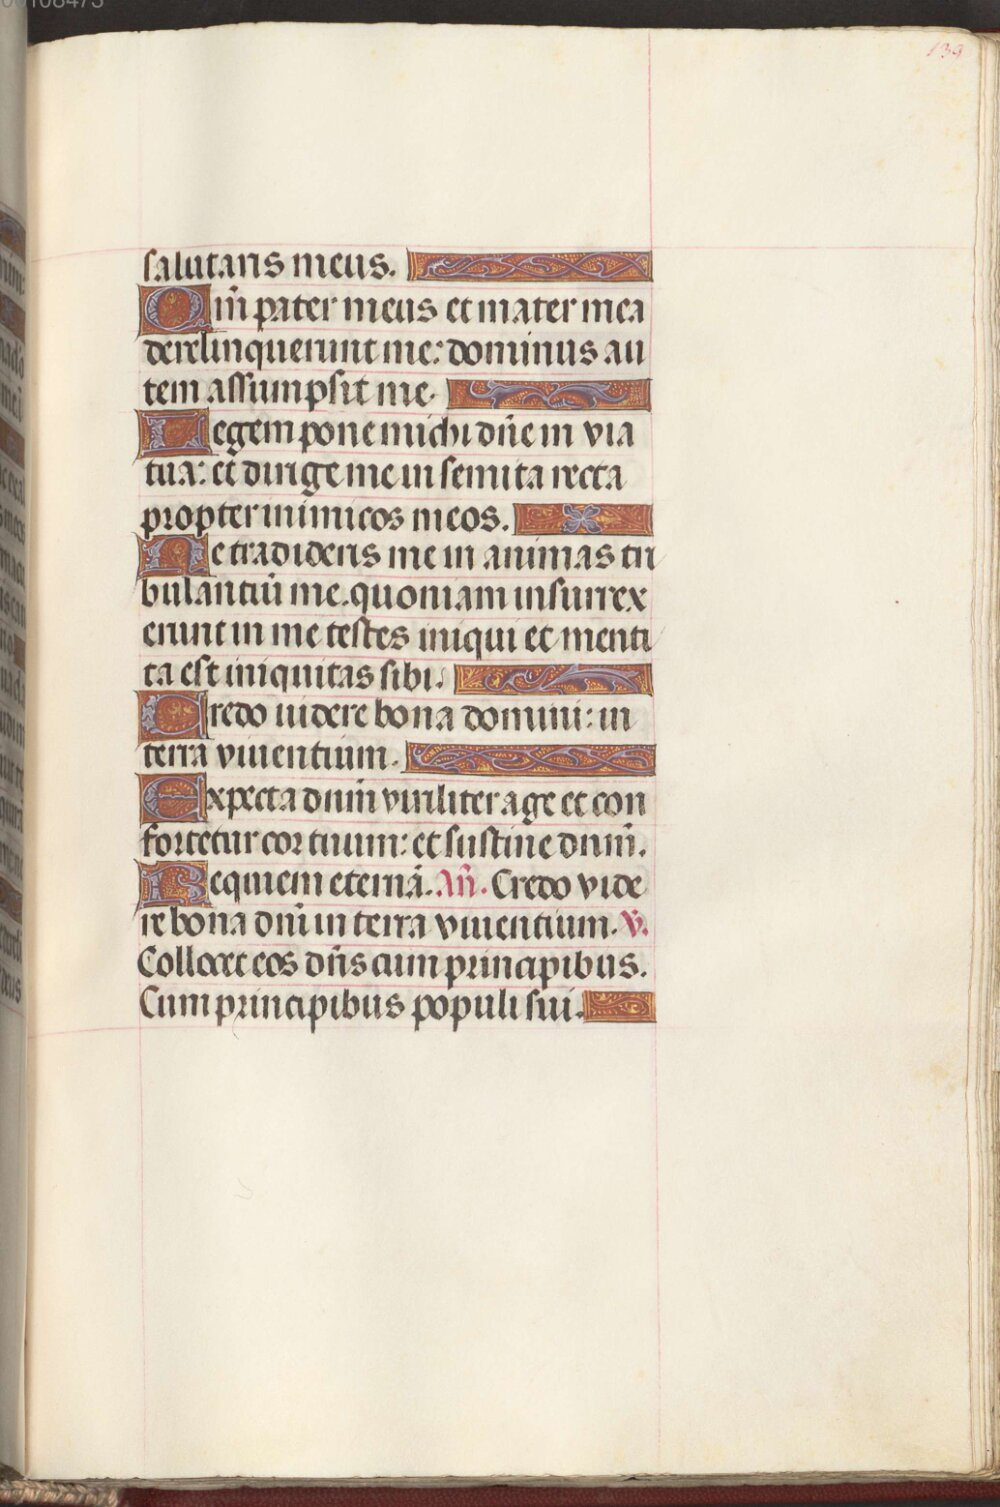 139
salutaris meus.
Qm̄ pater meus et mater mea
derelinquerunt me: dominus au
tem assumpsit me.
Legem pone michi dn̄e in via
tua: et dirige me in semita recta
propter inimicos meos.
Ne tradideris me in animas tri
bulantiū me. quoniam insurrex
erunt in me testes iniqui et menti
ta est iniquitas sibi.
Credo uidere bona domini: in
terra viuentium.
Expecta dnm̄ viriliter age et con
fortetur cor tuum: et sustine dnm̄.
Requiem eternā. Añ. Credo vide
re bona dnī in terra viuentium. V.
Collocet eos dn̄s cum principibus.
Cum principibus populi sui.